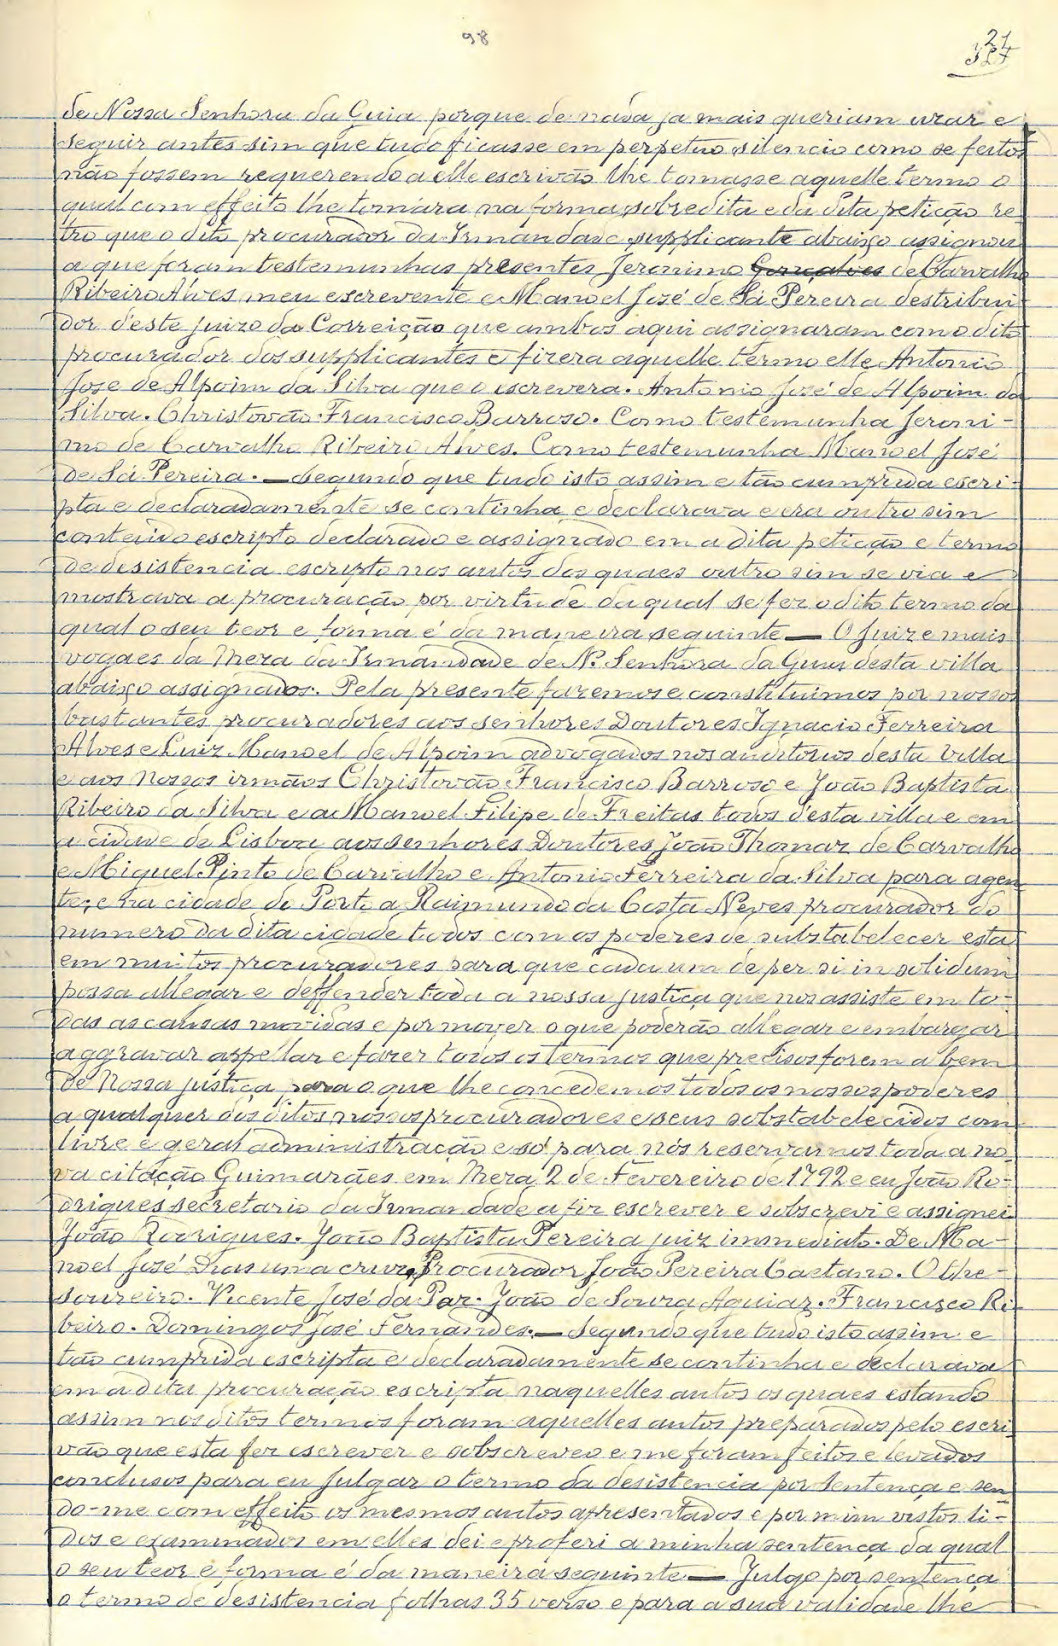 98
21
de Nossa Senhora da Guia porque de nada ja mais queriam uzar e
seguir antes sim que tudo ficasse em perpetuo silencio como se feitos
não fossem requerendo a elle escrivão lhe tomasse aquelle termo o
qual com effeito lhe tomara na forma sobredita e da dita petição re-
tro que o dito procurador da Irmandade supplicante abaixo assignou
a que foram testemunhas presentes Jeronimo Gonçalves de Carvalho
Ribeiro Alves meu escrevente e Manoel José de Sá Pereira destribui-
dor d'este juizo da Correição que ambos aqui assignaram com o dito
procurador dos supplicantes e fizera aquelle termo elle Antonio
Jose de Alpoim da Silva que o escrevera. Antonio José de Alpoim da
Silva. Christovão Francisco Barroso. Como testemunha Jeroni-
mo de Carvalho Ribeiro Alves. Como testemunha Manoel José
de Sá Pereira. — Segundo que tudo isto assim e tão cumprida escri-
pta e declaradamente se continha e declarava e era outro sim
conteudo escripto declarado e assignado em a dita petição e termo
de desistencia escripto nos autos dos quaes outro sim se via e
mostrava a procuração por virtude da qual se fez o dito termo da
qual o seu teor e forma é da maneira seguinte — O Juiz e mais
vogaes da Meza da Irmandade de N. Senhora da Guia desta villa
abaixo assignados. Pela presente fazemos e constituimos por nossos
bastantes procuradores aos senhores Doutores Ignacio Ferreira
Alves e Luiz Manoel de Alpoim advogados nos auditorios desta villa
e aos nossos irmãos Christovão Francisco Barroso e João Baptista
Ribeiro da Silva e a Manoel Filipe de Freitas todos d'esta villa e em
a cidade de Lisboa aos senhores Doutores João Thomaz de Carvalho
e Miguel Pinto de Carvalho e Antonio Ferreira da Silva para agen-
te, e na cidade do Porto a Raimundo da Costa Neves procurador do
numero da dita cidade todos com os poderes de substabelecer esta
em muitos procuradores para que cada um de per si in solidum
possa allegar e deffender toda a nossa justiça que nos assiste em to-
das as causas movidas e por mover o que poderão allegar e embargar
aggravar appellar e fazer todos os termos que precisos forem a bem
de nossa justiça para o que lhe concedemos todos os nossos poderes
a qualquer dos ditos nossos procuradores e seus sobstabelecidos com
livre e geral administração e só para nós reservamos toda a no-
va citação Guimarães em Meza 2 de Fevereiro de 1792 e eu João Ro-
drigues secretario da Irmandade a fiz escrever e sobscrevi e assignei
João Rodrigues. João Baptista Pereira juiz immediato. De Ma-
noel José Dias uma cruz. Procurador João Pereira Caetano. O the-
soureiro. Vicente José da Paz. João de Souza Aguiaz. Francisco Ri-
beiro. Domingos José Fernandes. — Segundo que tudo isto assim e
tão cumprida escripta e declaradamente se continha e declarava
em a dita procuração escripta naquelles autos os quaes estando
assim nos ditos termos foram aquelles autos preparados pelo escri-
vão que esta fez escrever e sobscreveo e me foram feitos e levados
conclusos para eu julgar o termo da desistencia por sentença e sen-
do-me com effeito os mesmos autos apresentados e por mim vistos li-
dos e examinados em elles dei e proferi a minha sentença da qual
o seu teor e forma é da maneira seguinte — Julgo por sentença
o termo de desistencia folhas 35 verso e para a sua validade lhe